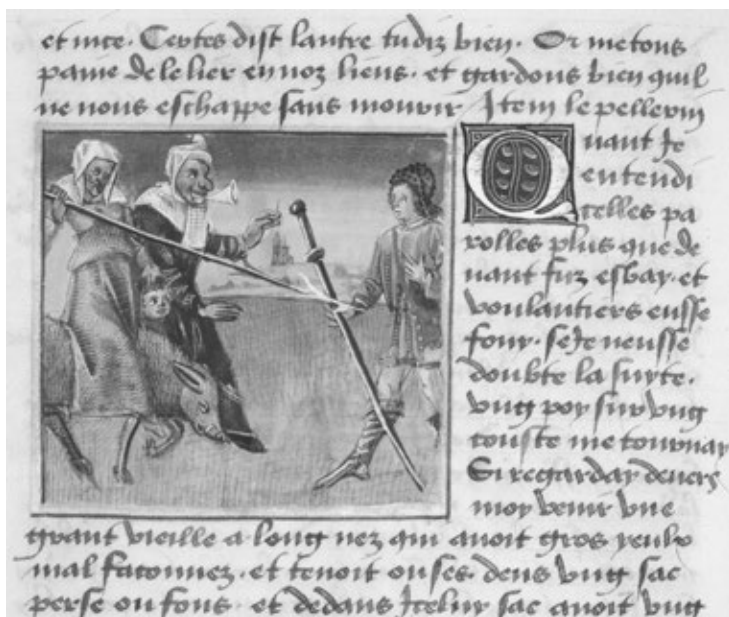 et nice. Certes dist lautre tu diz bien. Or metons
paine de le lier en noz liens. et gardons bien quil
ne nous eschappe sans mourir Item le pellerin
Quant Je
entendi
telles pa
rolles plus que de
uant fuz esbay. et
voulantiers eusse
fouy. se Je neusse
doubte la suyte.
vng poy sur vng
couste me tournay
Si regarday deuers
moy venir vne
grant vieille a long nez qui auoit gros yeulx
mal faconnez. et tenoit ou ses dens vng sac
perse ou fons. et dedans Iceluy sac auoit vng